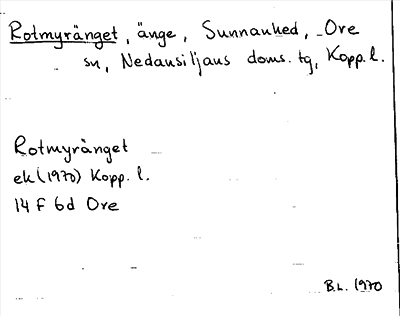 Rotmyränget, änge, Sunnanhed, Ore
sn, Nedansiljans doms. tg, Kopp. l.
Rotmyränget
ek (1970) Kopp. l.
14 F 6d Ore
B.L. 1970